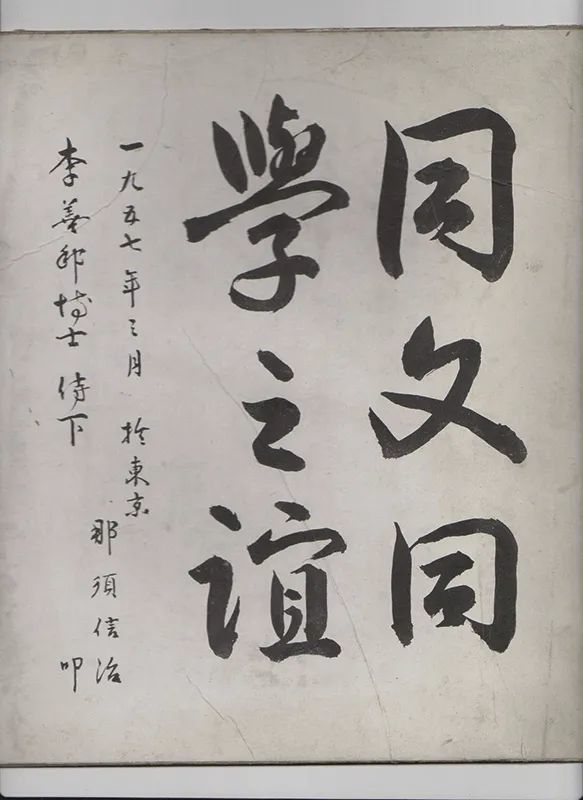 同文同
學之誼
一九五七年三月 於東京
那須信治
叩
李善邦博士 侍下